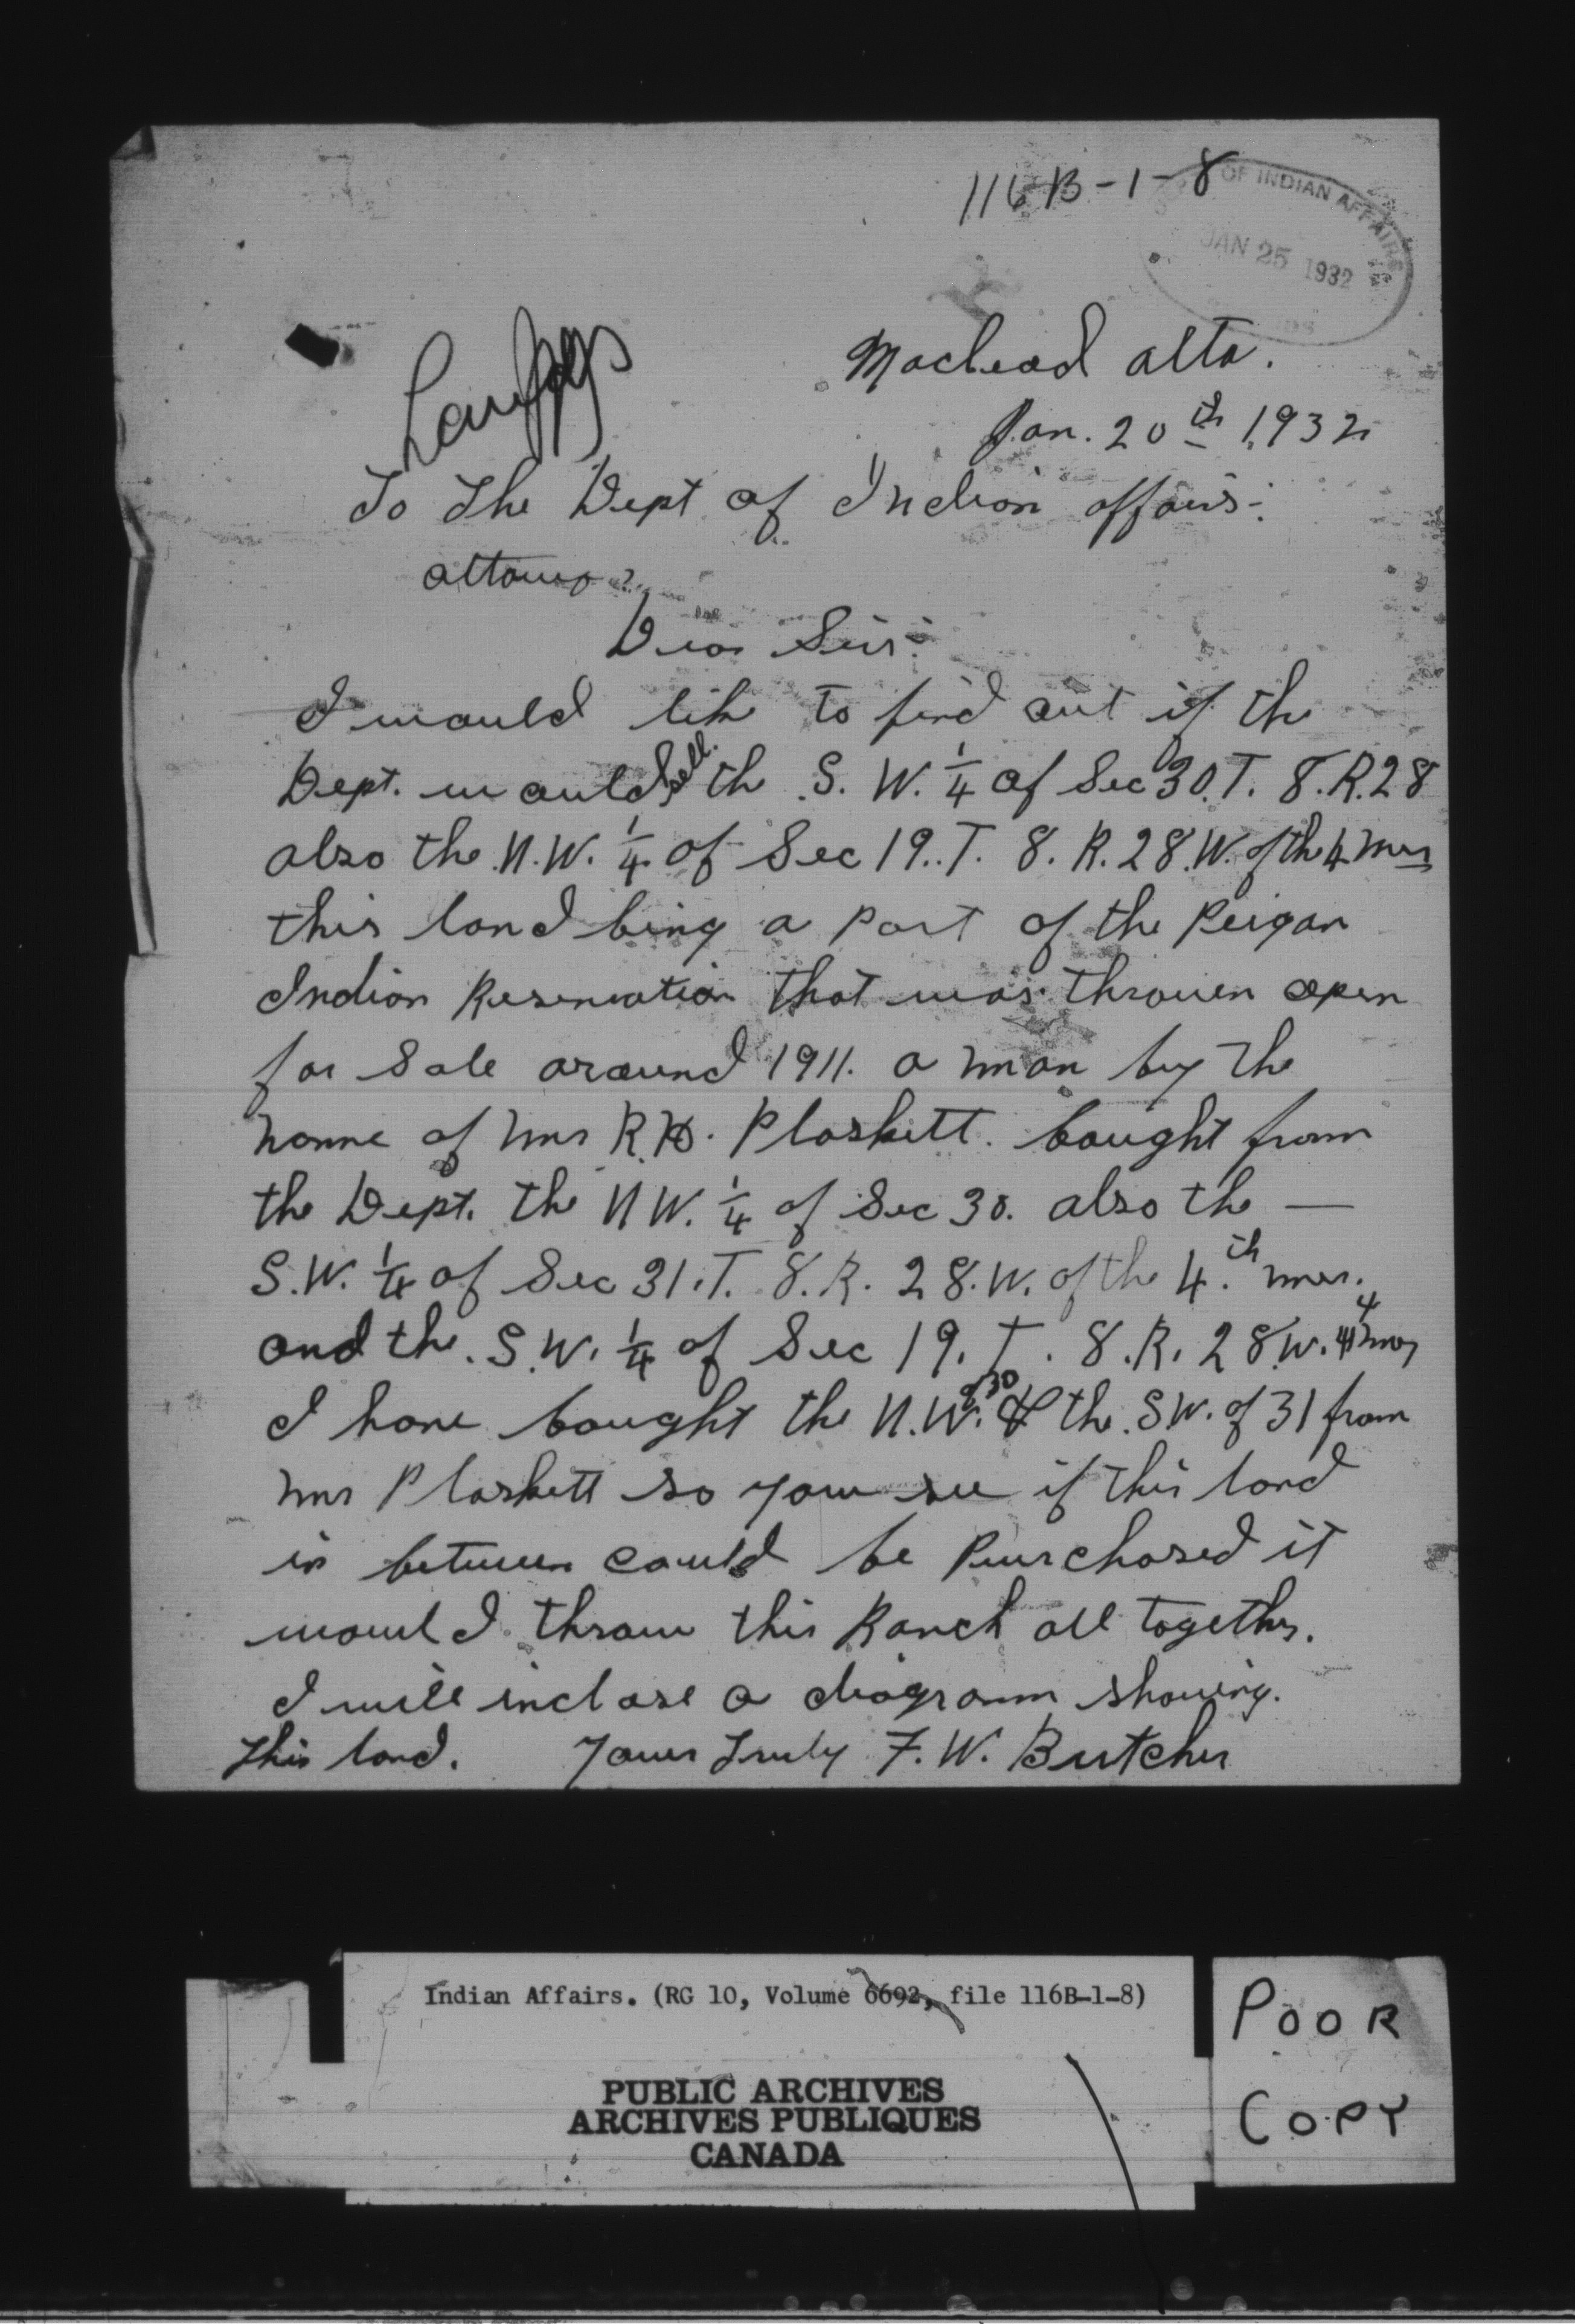 116B-1-8
OF INDIAN AFFAIRS
JAN 25 1932
Macleod Alta.
Jan. 20th 1932
To The Dept of Indian Affairs:
Ottawa
Dear Sir:
I would like to find out if the
Dept. would sell the S. W. 1/4 of Sec 30. T. 8. R. 28
also the N.W. 1/4 of Sec 19. T. 8. R. 28. W. of the 4 Mer
this land being a part of the Peigan
Indian Reservation that was thrown open
for Sale around 1911. a man by the
name of Mr R.H. Plaskett. bought from
the Dept. the N W. 1/4 of Sec 30. also the —
S.W. 1/4 of Sec 31. T. 8. R. 28. W. of the 4.th mer.
and the S.W. 1/4 of Sec 19. T. 8. R. 28 W. 4 mer
I have bought the N.W. of 30 & the S.W. of 31 from
Mr Plaskett so you see if this land
in between could be Purchased it
would throw this Ranch all together.
I will inclose a diagram showing.
this land. Yours Truly F. W. Butcher
Indian Affairs. (RG 10, Volume 6692, file 116B-1-8)
PUBLIC ARCHIVES
ARCHIVES PUBLIQUES
CANADA
POOR
COPY